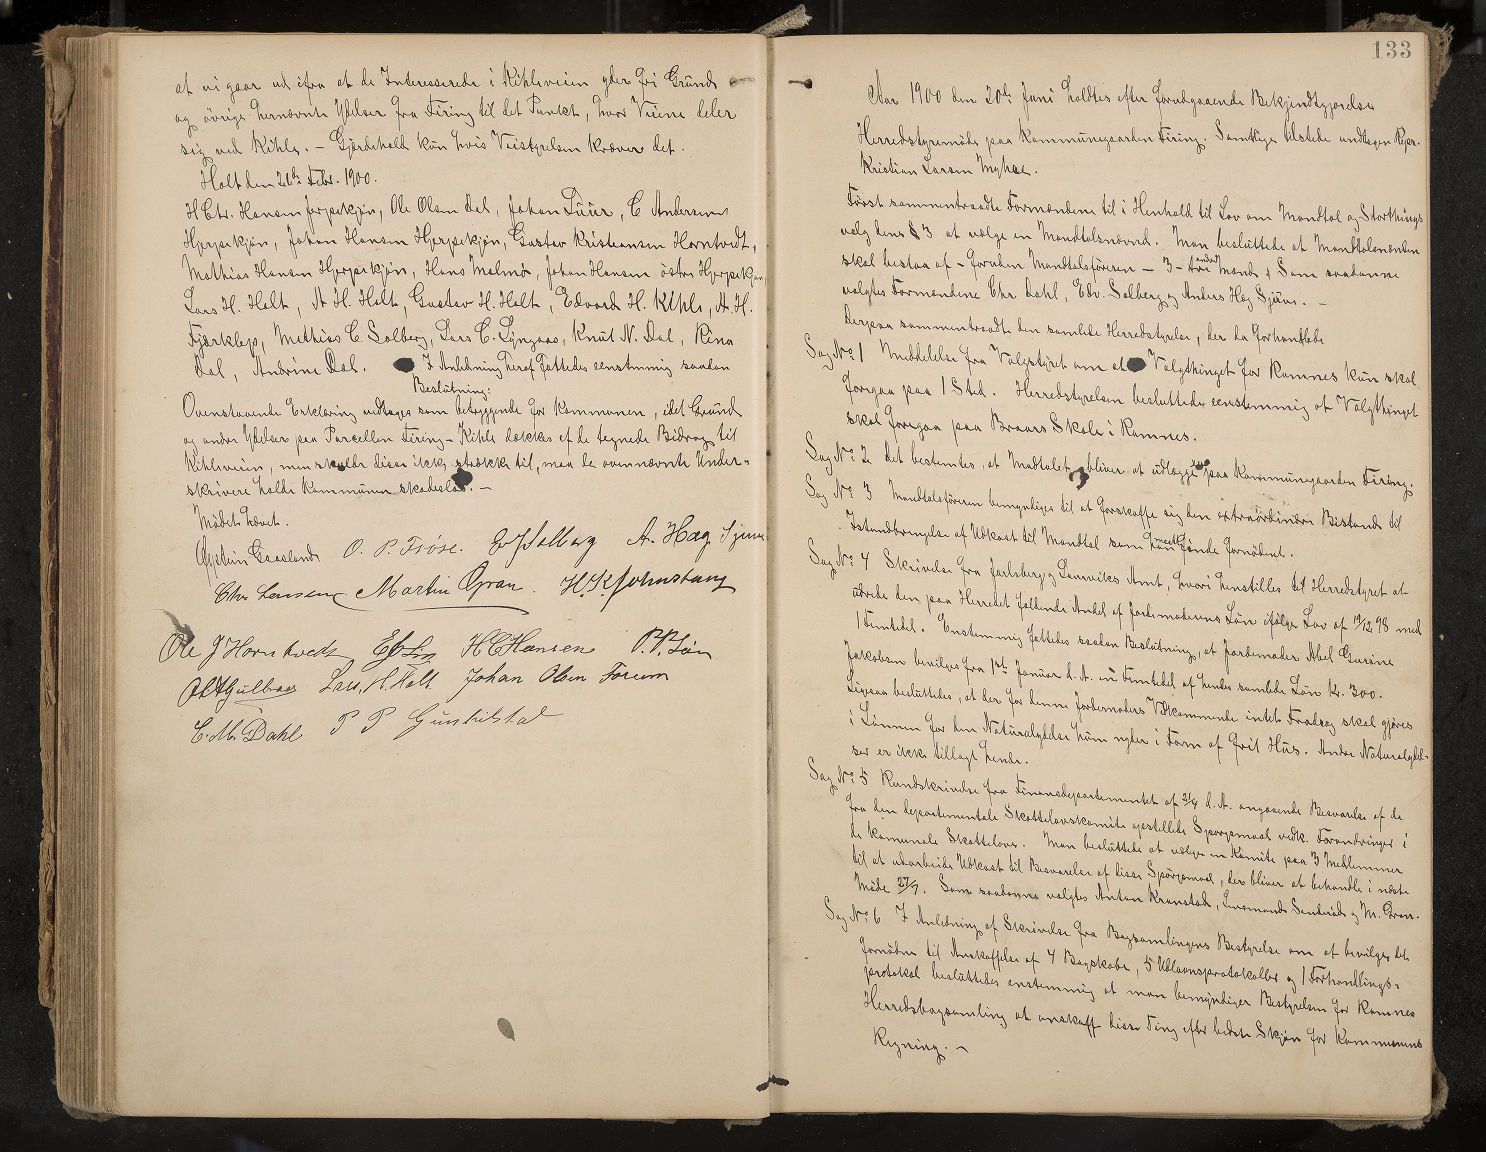 at vi gaar ud ifra at de Interesserede i Kihlsveien yder fri Grund
og øvrige hernævnte Ydelser fra Firing til det Punkt, hvor Veiene deler
sig ved Kihls. – Gjærdehold kun hvis Veistyrelsen kræver det.
Holt den 26de Febr. 1900.
H Chr. Hansen Jerpekjøn, Ole Olsen Dal, Johan Tuur, C Andersen
Hjerpekjøn, Johan Hansen Hjerpekjøn, Gustav Kristiansen Horntvedt,
Mathias Hansen Hjerpekjøn, Hans Malmø, Johan Hansen østre Hjerpekjøn,
Lars H. Holt, A H. Holt, Gustav H. Holt, Edvard H. Kihle, A. H.
Fjærklep, Mathias C. Solberg, Lars C. Lyngaas, Knut N. Dal, Rina
Dal, Andrine Dal. I Anledning heraf fattedes eenstemmig saadan
Beslutning:
Ovenstaaende Erklæring vedtages som betryggende for Kommunen, idet Grund
og andre Ydelser paa Parcellen Firing – Kihle dækkes af de tegnede Bidrag til
Kihlsveien, men skulde disse ikke strække til, maa de ovennævnte Under-
skrivere holde Kommunen skadesløs. –
Mødet hævet.
Graaland O. P. Frøse. Edv Solberg A. Hag Sjuve
Chr Larsen Martin Gran. H. K. Johnstang
Ole J Horntvedt H C Hansen P. P. Løn
Lars. H. Holt. Johan Olsen Forum
C. M. Dahl P P Gunhilstad
133
Aar 1900 den 20de Juni holdtes efter forudgaaende Bekjendtgjørelse
Herredstyremøde paa Kommunegaarden Firing. Samtlige tilstede undtagen Repr.
Kristian Larsen Myhre.
Først sammentraadte Formændene til i Henhold til Lov om Mandtal og Storthings-
valg dens § 3 at vælge en Mandtalsnævnd. Man besluttede at Mandtalsnævnden
skal bestaa af – foruden Mandtalsføreren – 3 – tre andre Mænd & Som saadanne
valgtes Formændene Chr Dahl, Edv. Solberg og Anders Hag Sjuve. –
Derpaa sammentraadte den samlede Herredstyrelse, der da forhandlede
Sag No 1 Meddelelse fra Valgstyret om at Valgthinget for Ramnes kun skal
foregaa paa 1 Sted. Herredstyrelsen besluttedes eenstemmig at Valgthinget
skal foregaa paa Braars Skole i Ramnes.
Sag No 2 Det bestemtes, at Madtalet bliver at udlægge paa Kommunegaarden Firing.
Sag No 3 Mandtalsføreren bemyndiges til at forskaffe sig den extraordinære Bistand til
Istandbringelse af Udkast til Mandtal som han maatte finde fornødent.
Sag No 4 Skrivelse fra Jarlsberg og Laurviks Amt, hvori henstilles til Herredstyret at
udrede den paa Herredet faldende Andel af Jordemoderens Løn ifølge Lov af 19/12 98 med
1 Femtedel. Enstemmig fattedes saadan Beslutning, at Jordemoder Abel Gurine
Jakobsen bevilges fra 1ste Januar d. A. en Femtedel af hendes samlede Løn Kr. 300.
Ligsaa besluttedes, at der for denne Jordemoders Vedkommende intet Fradrag skal gjøres
i Lønnen for den Naturalydelse hun nyder i Form af frit Hus. Andre Naturalydel-
ser er ikke tillagt hende.
Sag No 5 Rundskrivelse fra Finansdepartementet af 24/4 d. A. angaaende Besvarelse af de
fra den departementale Skattelovskomite opstillede Spørgsmaal vedk. Forandringer i
de kommunale Skattelove. Man besluttede at vælge en Komite paa 3 Medlemmer
til at udarbeide Udkast til Besvarelse af disse Spørgsmaal, der bliver at behandle i næste
Møde 27/7. Som saadanne valgtes Anton Kranstad, Lensmand Sandviads og M. Gran.
Sag No 6 I Anledning af Skrivelse fra Bogsamlingens Bestyrelse om at bevilges det
fornødne til Anskaffelse af 4 Bogskabe, 5 Udlaansprotokoller og 1 Forhandlings-
protokol besluttedes enstemmig at man bemyndiger Bestyrelsen for Ramnes
Herredsbogsamling at anskaffe disse Ting efter bedste Skjøn for Kommunens
Regning. –